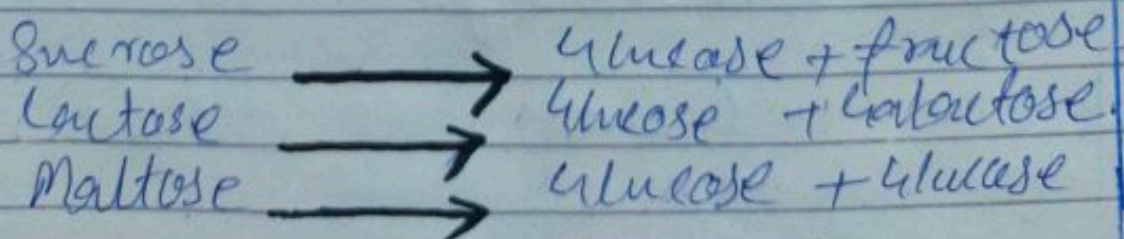 Sucrose → Glucose + fructose
Lactose → Glucose + Galactose
Maltose → Glucose + Glucose